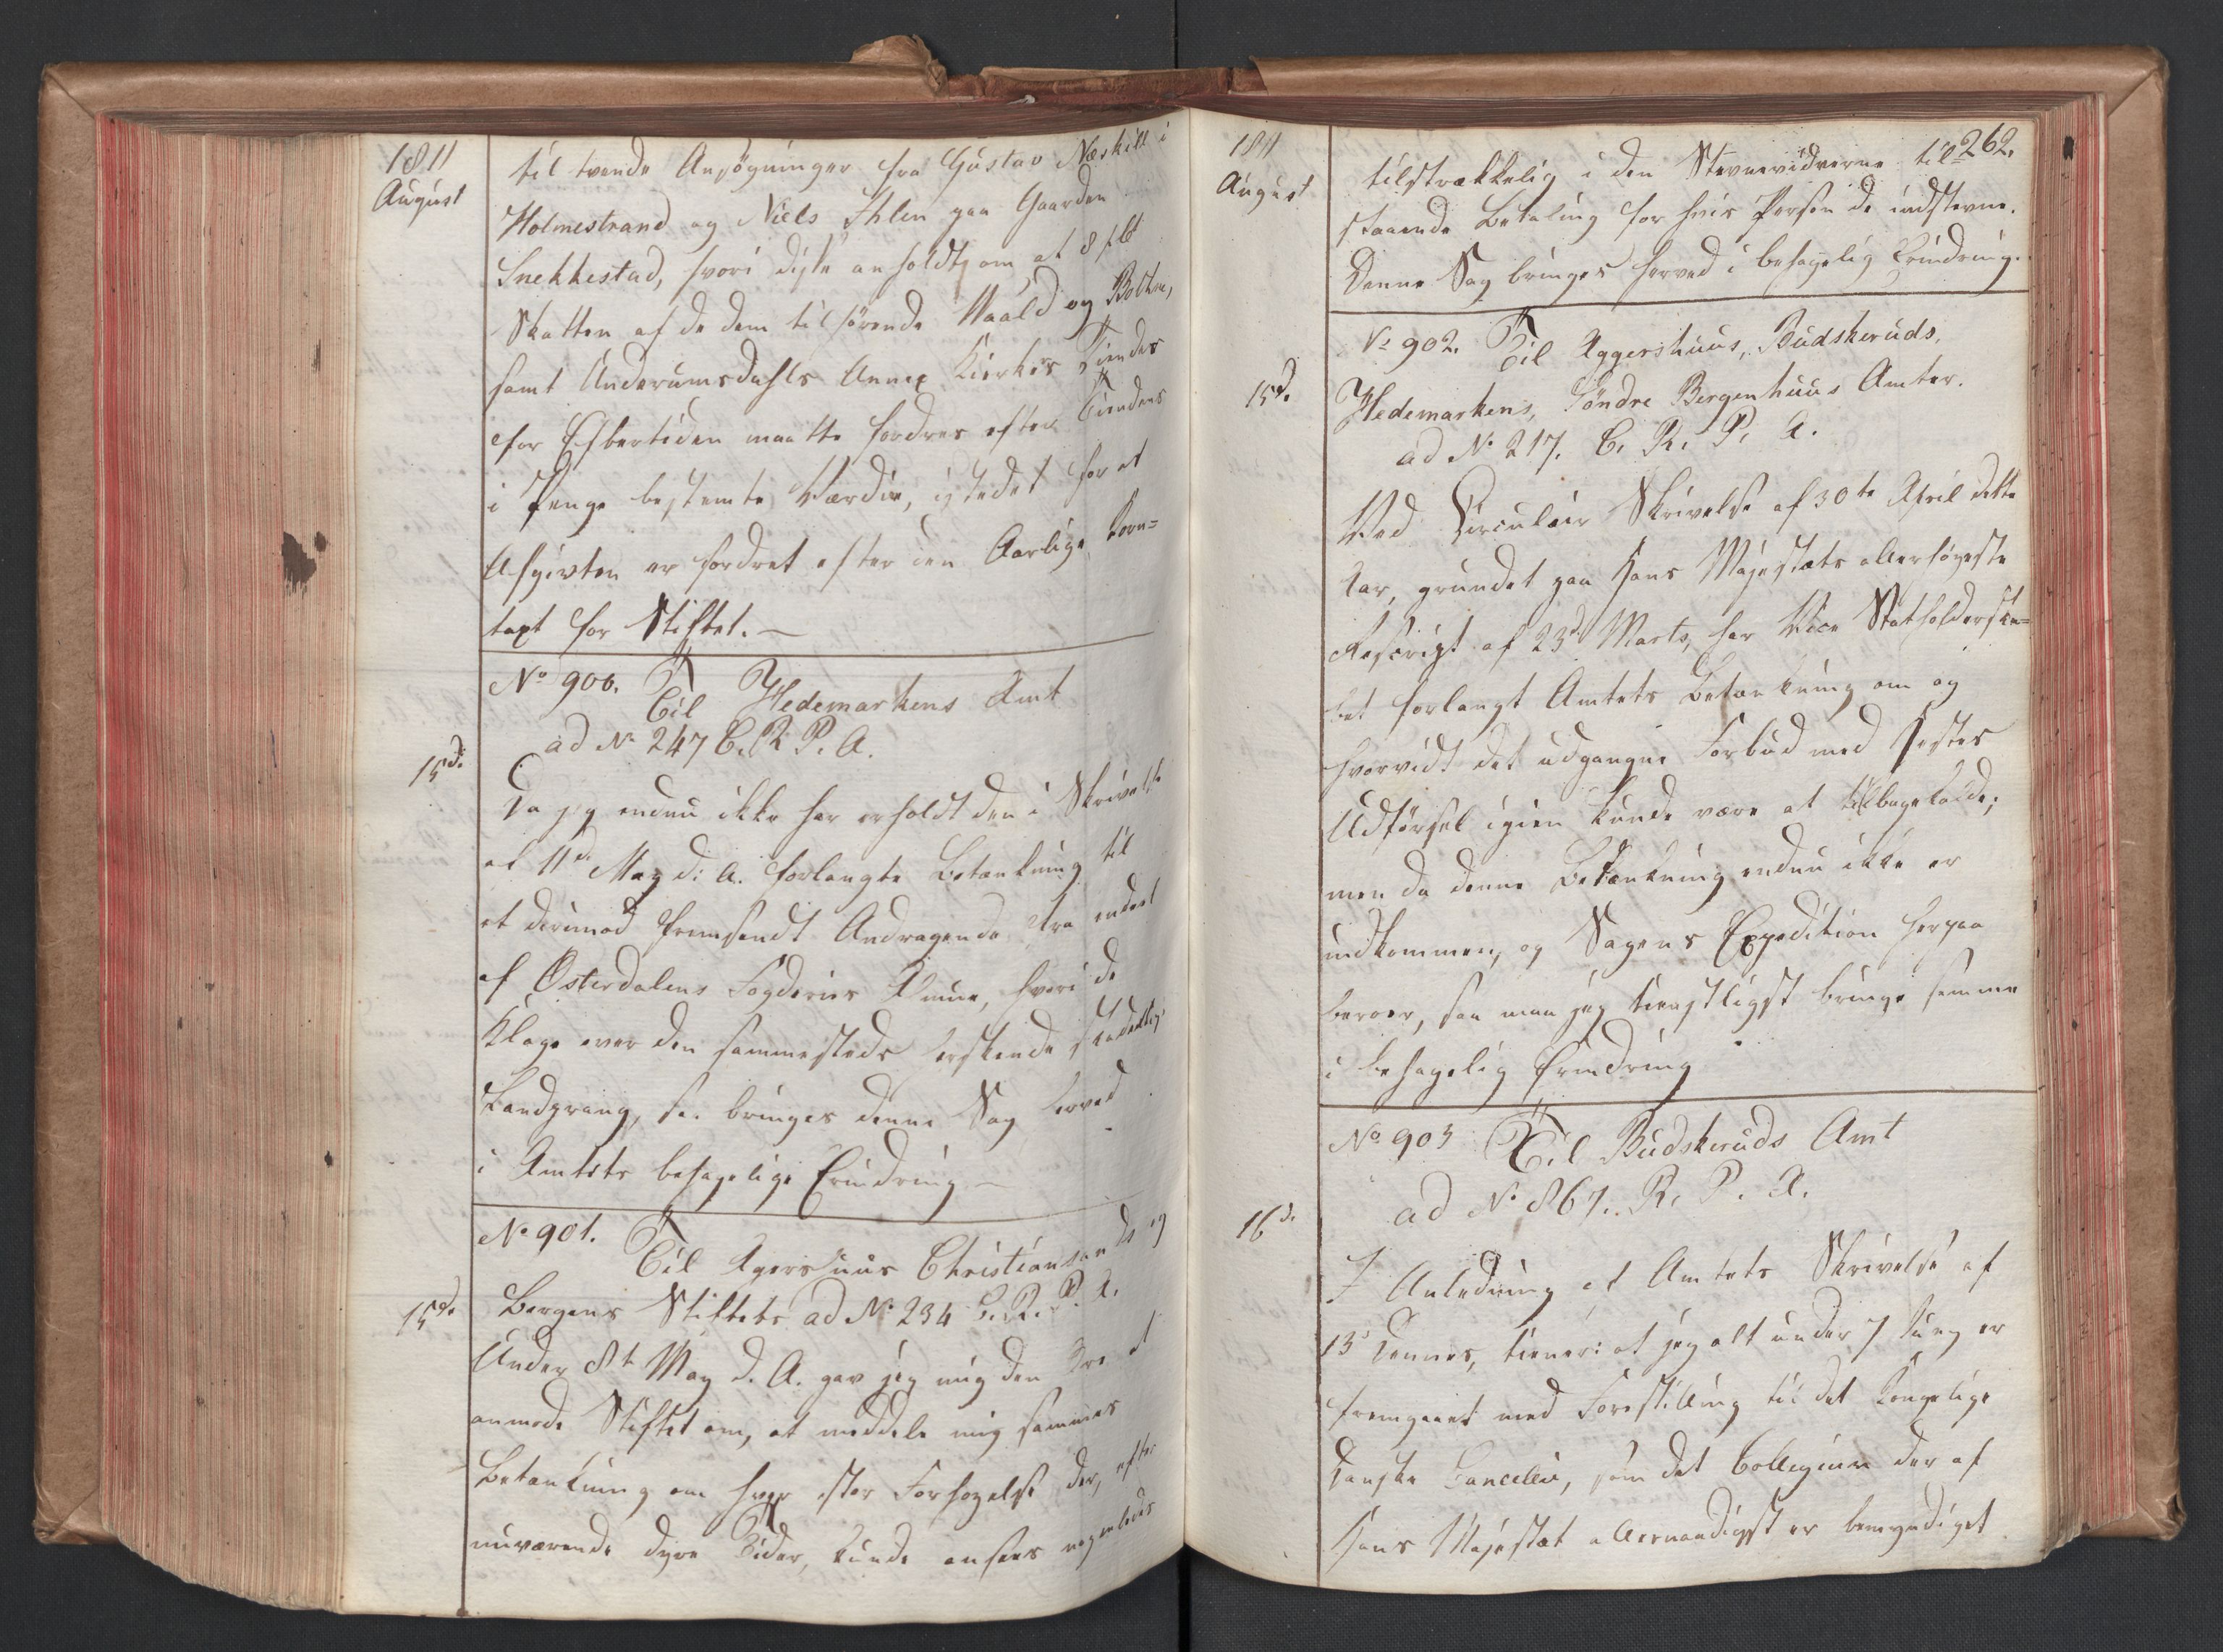 1811
August
til tvende Ansøgninger fra Gustav Næskill i
Holmestrand og Niels Ihlen paa Gaarden
Snekkestad, hvori disse anholdt om, at
Skatten af de dem tilhørende Vaald og Bothne,
samt Underumsdahls Annex Kierkes Tiender
for Efbertiden maatte fordres efter Tiendens
i Penge bestemte Værdie, istedet for at
Afgivten er fordret efter den Aarlige Korn-
taxt for Stiftet. —
No 900. Til Hedemarkens Amt
ad No 247 C. R. P. A.
15d.
Da jeg endnu ikke har erholdt den i Skrivelse
af 11d. May d: A. forlangte Betænkning til
et derimod fremsendt Andragende fra endeel
af Østerdalens Fogderies Almue, hvori de
Klage over den sammesteds herskende skadelig
Landprang, saa bringes denne Sag herved
i Amtets behagelige Erindring —
No 901. Til Agershuus Christiansands og
15de
Bergens Stifter ad No 234 C. R. P. A.
Under 8t May d. A. gav jeg mig den Ære at
anmode Stiftet om, at meddele mig sammes
Betænkning om hvor stor Forhøyelse der, efter
nuværende dyre Tider, kunde ansees nogenledes
1811
August
262.
tilstrækkelig i den Stevnevidnerne til-
staaende Betaling for hvis Person de indstevne.
Denne Sag bringes herved i behagelig Erindring.
No 902. Til Aggershuus, Budskeruds,
15d.
Hedemarkens, Søndre Bergenhuus Amter.
ad No 217. C. R. P. A.
Ved Circulair Skrivelse af 30te April dette
Aar, grundet paa Hans Majestæts allerhøyeste
Rescript af 23d Marts, har Vice Statholderska-
bet forlangt Amtets Betænkning om og
hvorvidt det udgangne Forbud mod Hestes
Udførsel igien kunde være at tilbagekalde;
men da denne Betænkning endnu ikke er
indkommen, og Sagens Expedition herpaa
beroer, saa maa jeg tienstligst bringe samme
i behagelig Erindring
No 903 Til Budskeruds Amt
ad No 867. R. P. A.
16d.
I Anledning af Amtets Skrivelse af
13d dennes, tiener: at jeg alt under 7 huj er
fremgaaet med Forestilling til det Kongelige
Danske Cancellie, som det Collegium der af
Hans Majestæt allernaadigst er bemyndiget